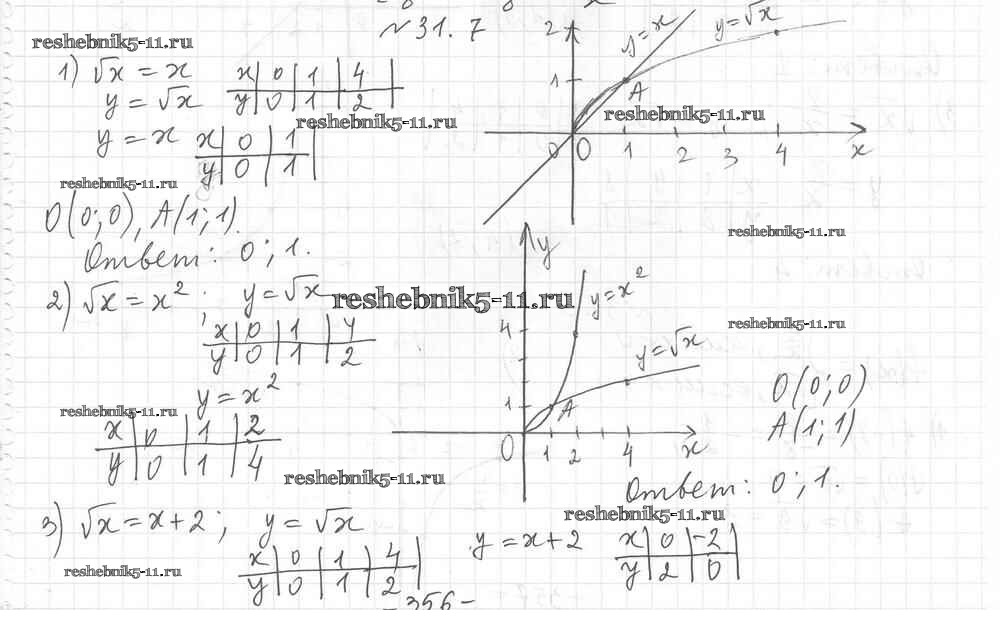 №31.7
reshebnik5-11.ru
1) √x = x
x | 0 | 1 | 4
y | 0 | 1 | 2
y = √x
reshebnik5-11.ru
y = x
x | 0 | 1
y | 0 | 1
reshebnik5-11.ru
O(0;0), A(1;1).
Ответ: 0; 1.
2
y=x
y=√x
1
A
reshebnik5-11.ru
0 0 1 2 3 4 x
reshebnik5-11.ru
2) √x = x²; y = √x
reshebnik5-11.ru
x | 0 | 1 | 4
y | 0 | 1 | 2
y = x²
reshebnik5-11.ru
x | 0 | 1 | 2
y | 0 | 1 | 4
reshebnik5-11.ru
y
y=x²
reshebnik5-11.ru
4
y=√x
1
A
0 1 2 4 x
O(0;0)
A(1;1)
Ответ: 0; 1.
reshebnik5-11.ru
3) √x = x+2; y = √x
x | 0 | 1 | 4
y | 0 | 1 | 2
y = x+2
x | 0 | -2
y | 2 | 0
reshebnik5-11.ru
-356-